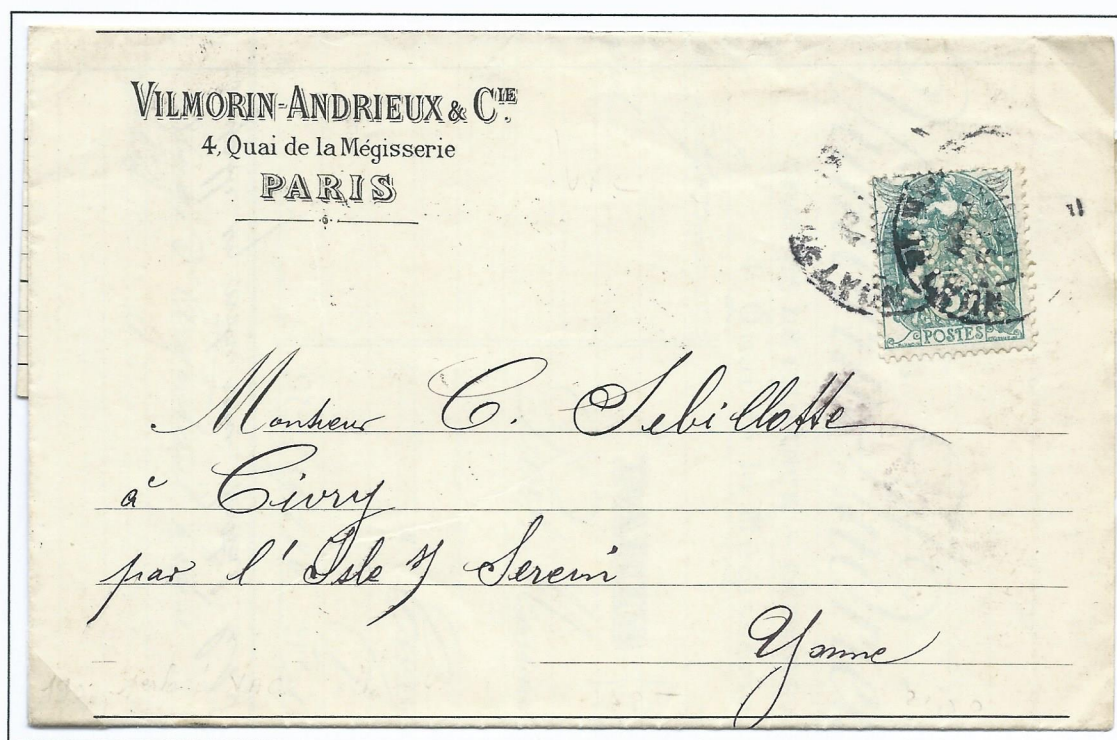 VILMORIN-ANDRIEUX & CIE.
4, Quai de la Mégisserie
PARIS
LYON
POSTES
Monsieur C. Sebillotte
à Civry
par l'Isle s/ Serein
Yonne